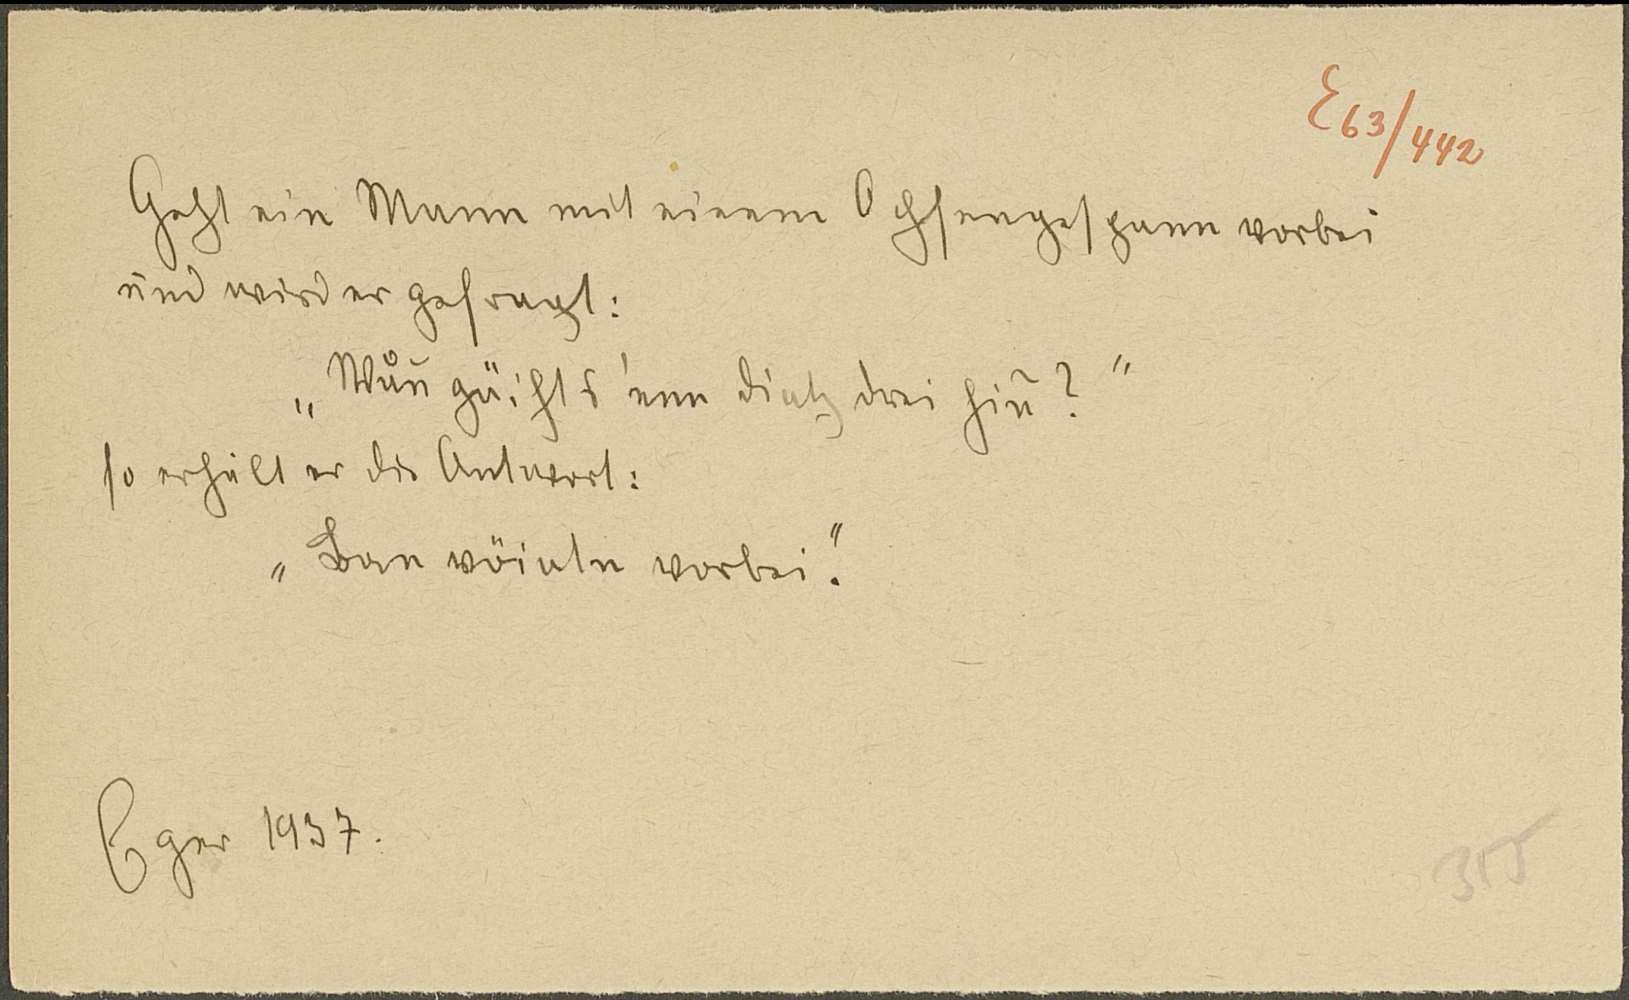 E63/442
Geht ein Mann mit einem Ochsengespann vorbei
und wird er gefragt:
„Wůn gäihts 'enn diatz drei hiñ?"
so erhält er die Antwort:
„Ban vöiatn vorbei."
Eger 1937.
315